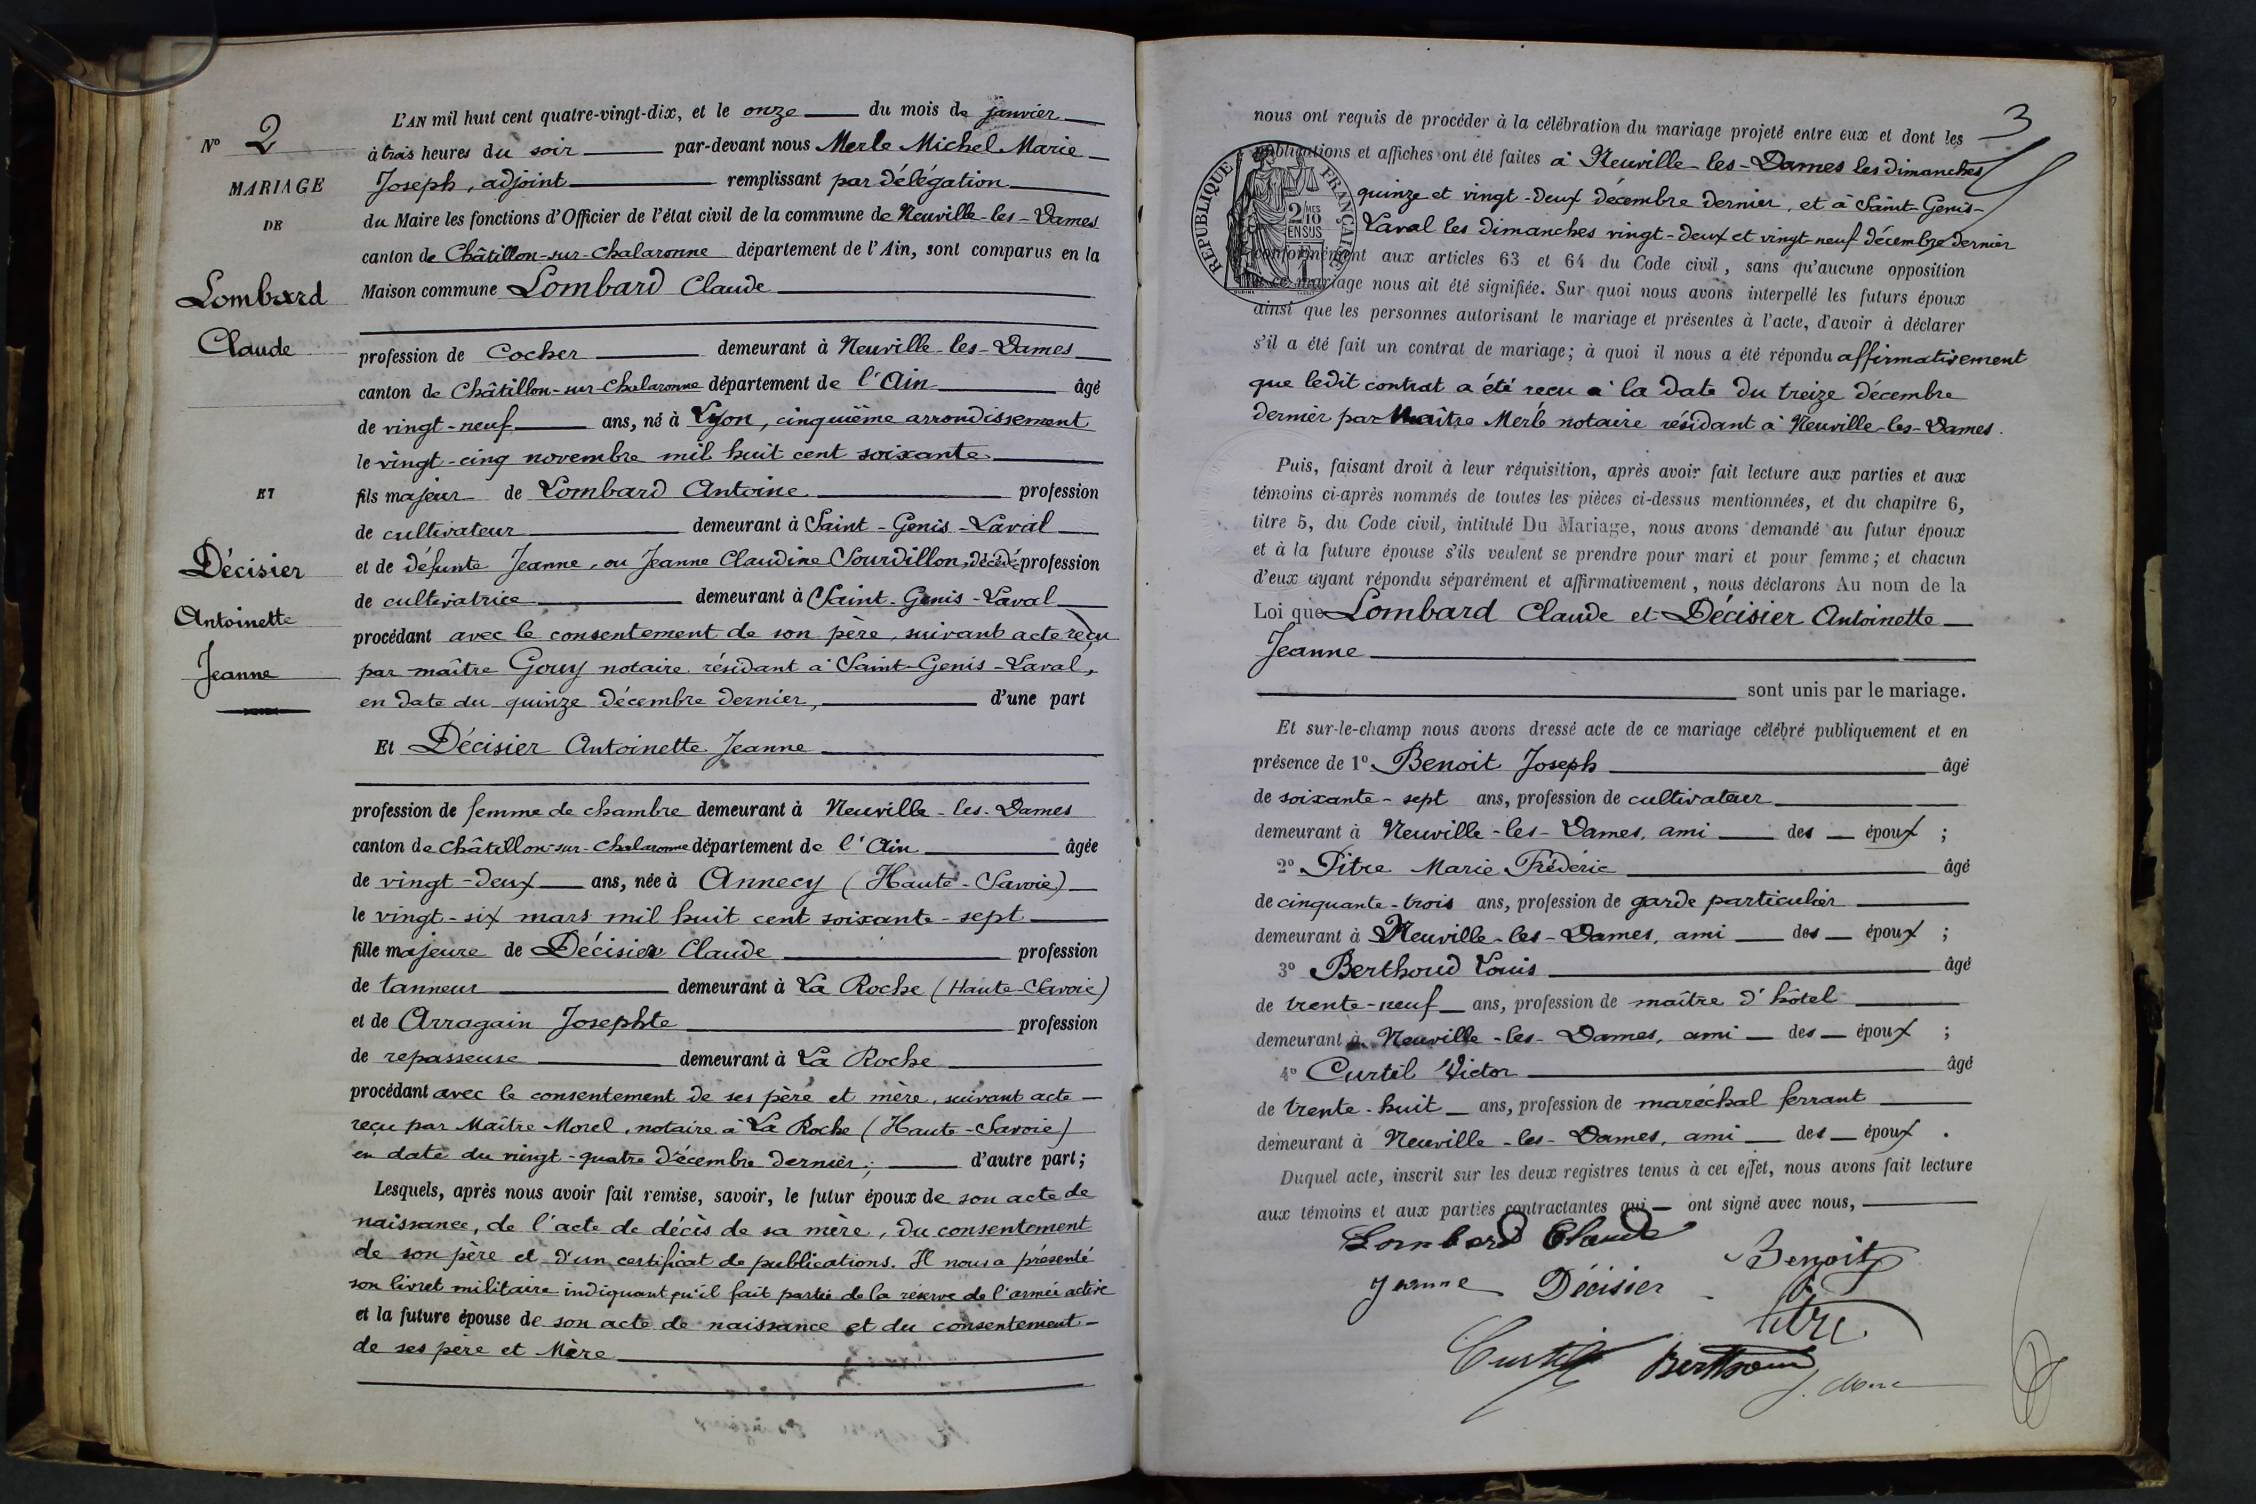 L'AN mil huit cent quatre-vingt-dix, et le onze du mois de janvier
N° 2
à trois heures du soir par-devant nous Merle Michel Marie
MARIAGE
Joseph, adjoint remplissant par délégation
DE
du Maire les fonctions d'Officier de l'état civil de la commune de Neuville-les-Dames
canton de Châtillon-sur-Chalaronne département de l'Ain, sont comparus en la
Lombard
Maison commune Lombard Claude
Claude
profession de Cocher demeurant à Neuville-les-Dames
canton de Châtillon-sur-Chalaronne département de l'Ain âgé
de vingt-neuf ans, né à Lyon, cinquième arrondissement
le vingt-cinq novembre mil huit cent soixante
ET
fils majeur de Lombard Antoine profession
de cultivateur demeurant à Saint-Genis-Laval
Décisier
et de défunte Jeanne, ou Jeanne Claudine Sourdillon, profession
Antoinette
de cultivatrice demeurant à Saint-Genis-Laval
procédant avec le consentement de son père, suivant acte reçu
Jeanne
par maître Gouy notaire résidant à Saint-Genis-Laval,
en date du quinze décembre dernier, d'une part
Et Décisier Antoinette Jeanne
profession de femme de chambre demeurant à Neuville-les-Dames
canton de Châtillon-sur-Chalaronne département de l'Ain âgée
de vingt-deux ans, née à Annecy (Haute-Savoie)
le vingt-six mars mil huit cent soixante-sept
fille majeure de Décisier Claude profession
de tanneur demeurant à La Roche (Haute-Savoie)
et de Arragain Josephte profession
de repasseuse demeurant à La Roche
procédant avec le consentement de ses père et mère, suivant acte
reçu par Maître Morel, notaire à La Roche (Haute-Savoie)
en date du vingt-quatre décembre dernier; d'autre part;
Lesquels, après nous avoir fait remise, savoir, le futur époux de son acte de
naissance, de l'acte de décès de sa mère, du consentement
de son père et d'un certificat de publications. Il nous a présenté
son livret militaire indiquant qu'il fait partie de la réserve de l'armée active
et la future épouse de son acte de naissance et du consentement
de ses père et Mère
3
nous ont requis de procéder à la célébration du mariage projeté entre eux et dont les
publications et affiches ont été faites à Neuville-les-Dames les dimanches
quinze et vingt-deux décembre dernier, et à Saint-Genis-
Laval les dimanches vingt-deux et vingt-neuf décembre dernier
RÉPUBLIQUE FRANÇAISE
2/10
EN SUS
conformément aux articles 63 et 64 du Code civil, sans qu'aucune opposition
à ce mariage nous ait été signifiée. Sur quoi nous avons interpellé les futurs époux
ainsi que les personnes autorisant le mariage et présentes à l'acte, d'avoir à déclarer
s'il a été fait un contrat de mariage; à quoi il nous a été répondu affirmativement
que ledit contrat a été reçu à la date du treize décembre
dernier par Maître Merle notaire résidant à Neuville-les-Dames.
Puis, faisant droit à leur réquisition, après avoir fait lecture aux parties et aux
témoins ci-après nommés de toutes les pièces ci-dessus mentionnées, et du chapitre 6,
titre 5, du Code civil, intitulé Du Mariage, nous avons demandé au futur époux
et à la future épouse s'ils veulent se prendre pour mari et pour femme; et chacun
d'eux ayant répondu séparément et affirmativement, nous déclarons Au nom de la
Loi que Lombard Claude et Décisier Antoinette
Jeanne
sont unis par le mariage.
Et sur-le-champ nous avons dressé acte de ce mariage célébré publiquement et en
présence de 1° Benoit Joseph âgé
de soixante-sept ans, profession de cultivateur
demeurant à Neuville-les-Dames, ami des époux ;
2° Pitre Marie Frédéric âgé
de cinquante-trois ans, profession de garde particulier
demeurant à Neuville-les-Dames, ami des époux ;
3° Berthoud Louis âgé
de trente-neuf ans, profession de maître d'hôtel
demeurant à Neuville-les-Dames, ami des époux ;
4° Curtil Victor âgé
de trente-huit ans, profession de maréchal ferrant
demeurant à Neuville-les-Dames, ami des époux .
Duquel acte, inscrit sur les deux registres tenus à cet effet, nous avons fait lecture
aux témoins et aux parties contractantes qui ont signé avec nous,
Lombard Claude
Benoit
Jeanne Décisier
Pitre
Curtil Berthoud